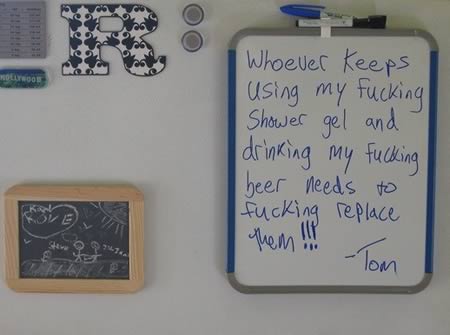 R
HOLLYWOOD
Whoever keeps
using my fucking
Shower gel and
drinking my fucking
beer needs to
fucking replace
them!!!
-Tom
Steve